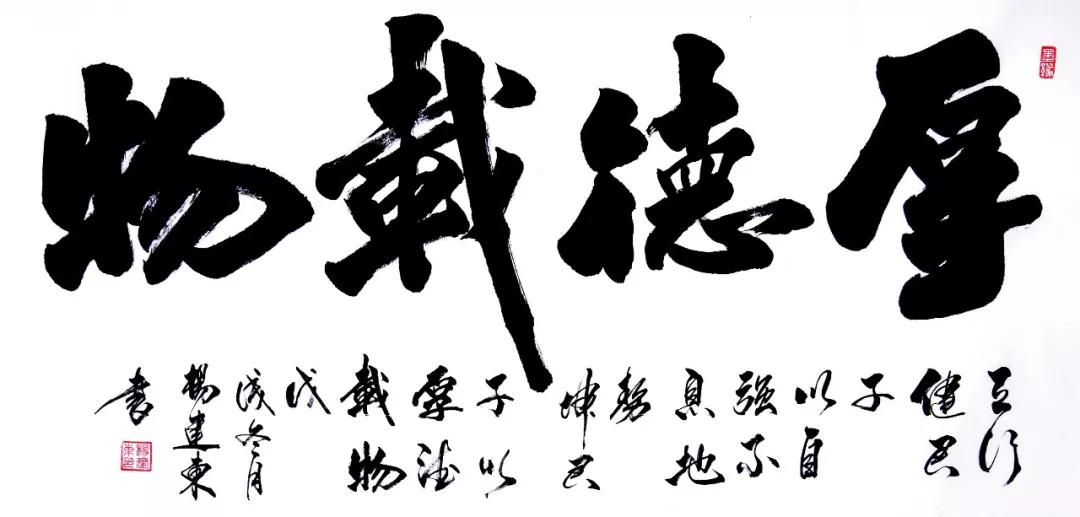 厚德載物
墨緣
天行
健君
子
以自
强不
息地
勢
坤君
子以
厚德
載物
戊
戌冬月
楊建東
書